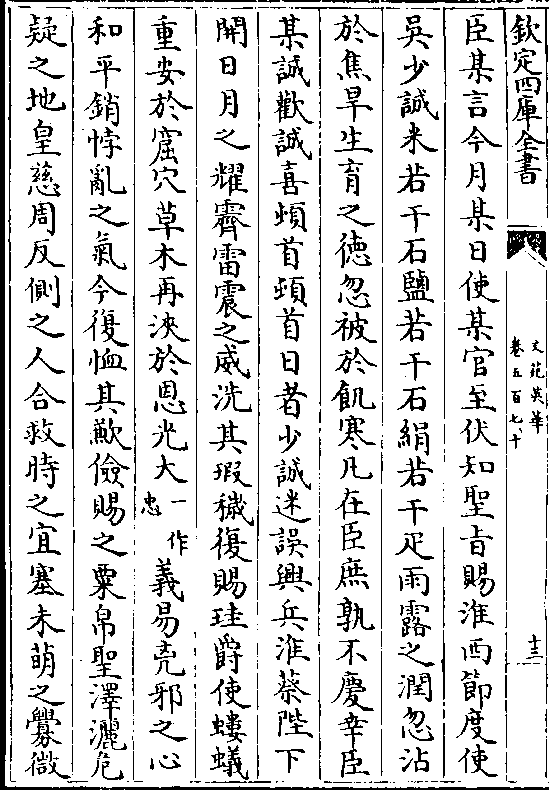 欽定四庫全書
文苑英華
卷五百七十
十三
臣某言今月某日使某官至伏知聖旨賜淮西節度使
吳少誠米若干石鹽若干石絹若干疋雨露之潤忽沾
於焦旱生育之德忽被於飢寒凡在臣庶孰不慶幸臣
某誠歡誠喜頓首頓首日者少誠迷誤興兵淮蔡陛下
開日月之耀霽雷震之威洗其瑕穢復賜珪爵使螻蟻
重安於窟穴草木再浹於恩光大一作忠義易亮邪之心
和平銷悖亂之氣今復恤其歉儉賜之粟帛聖澤灑危
疑之地皇慈周反側之人合救時之宜塞未萌之釁微